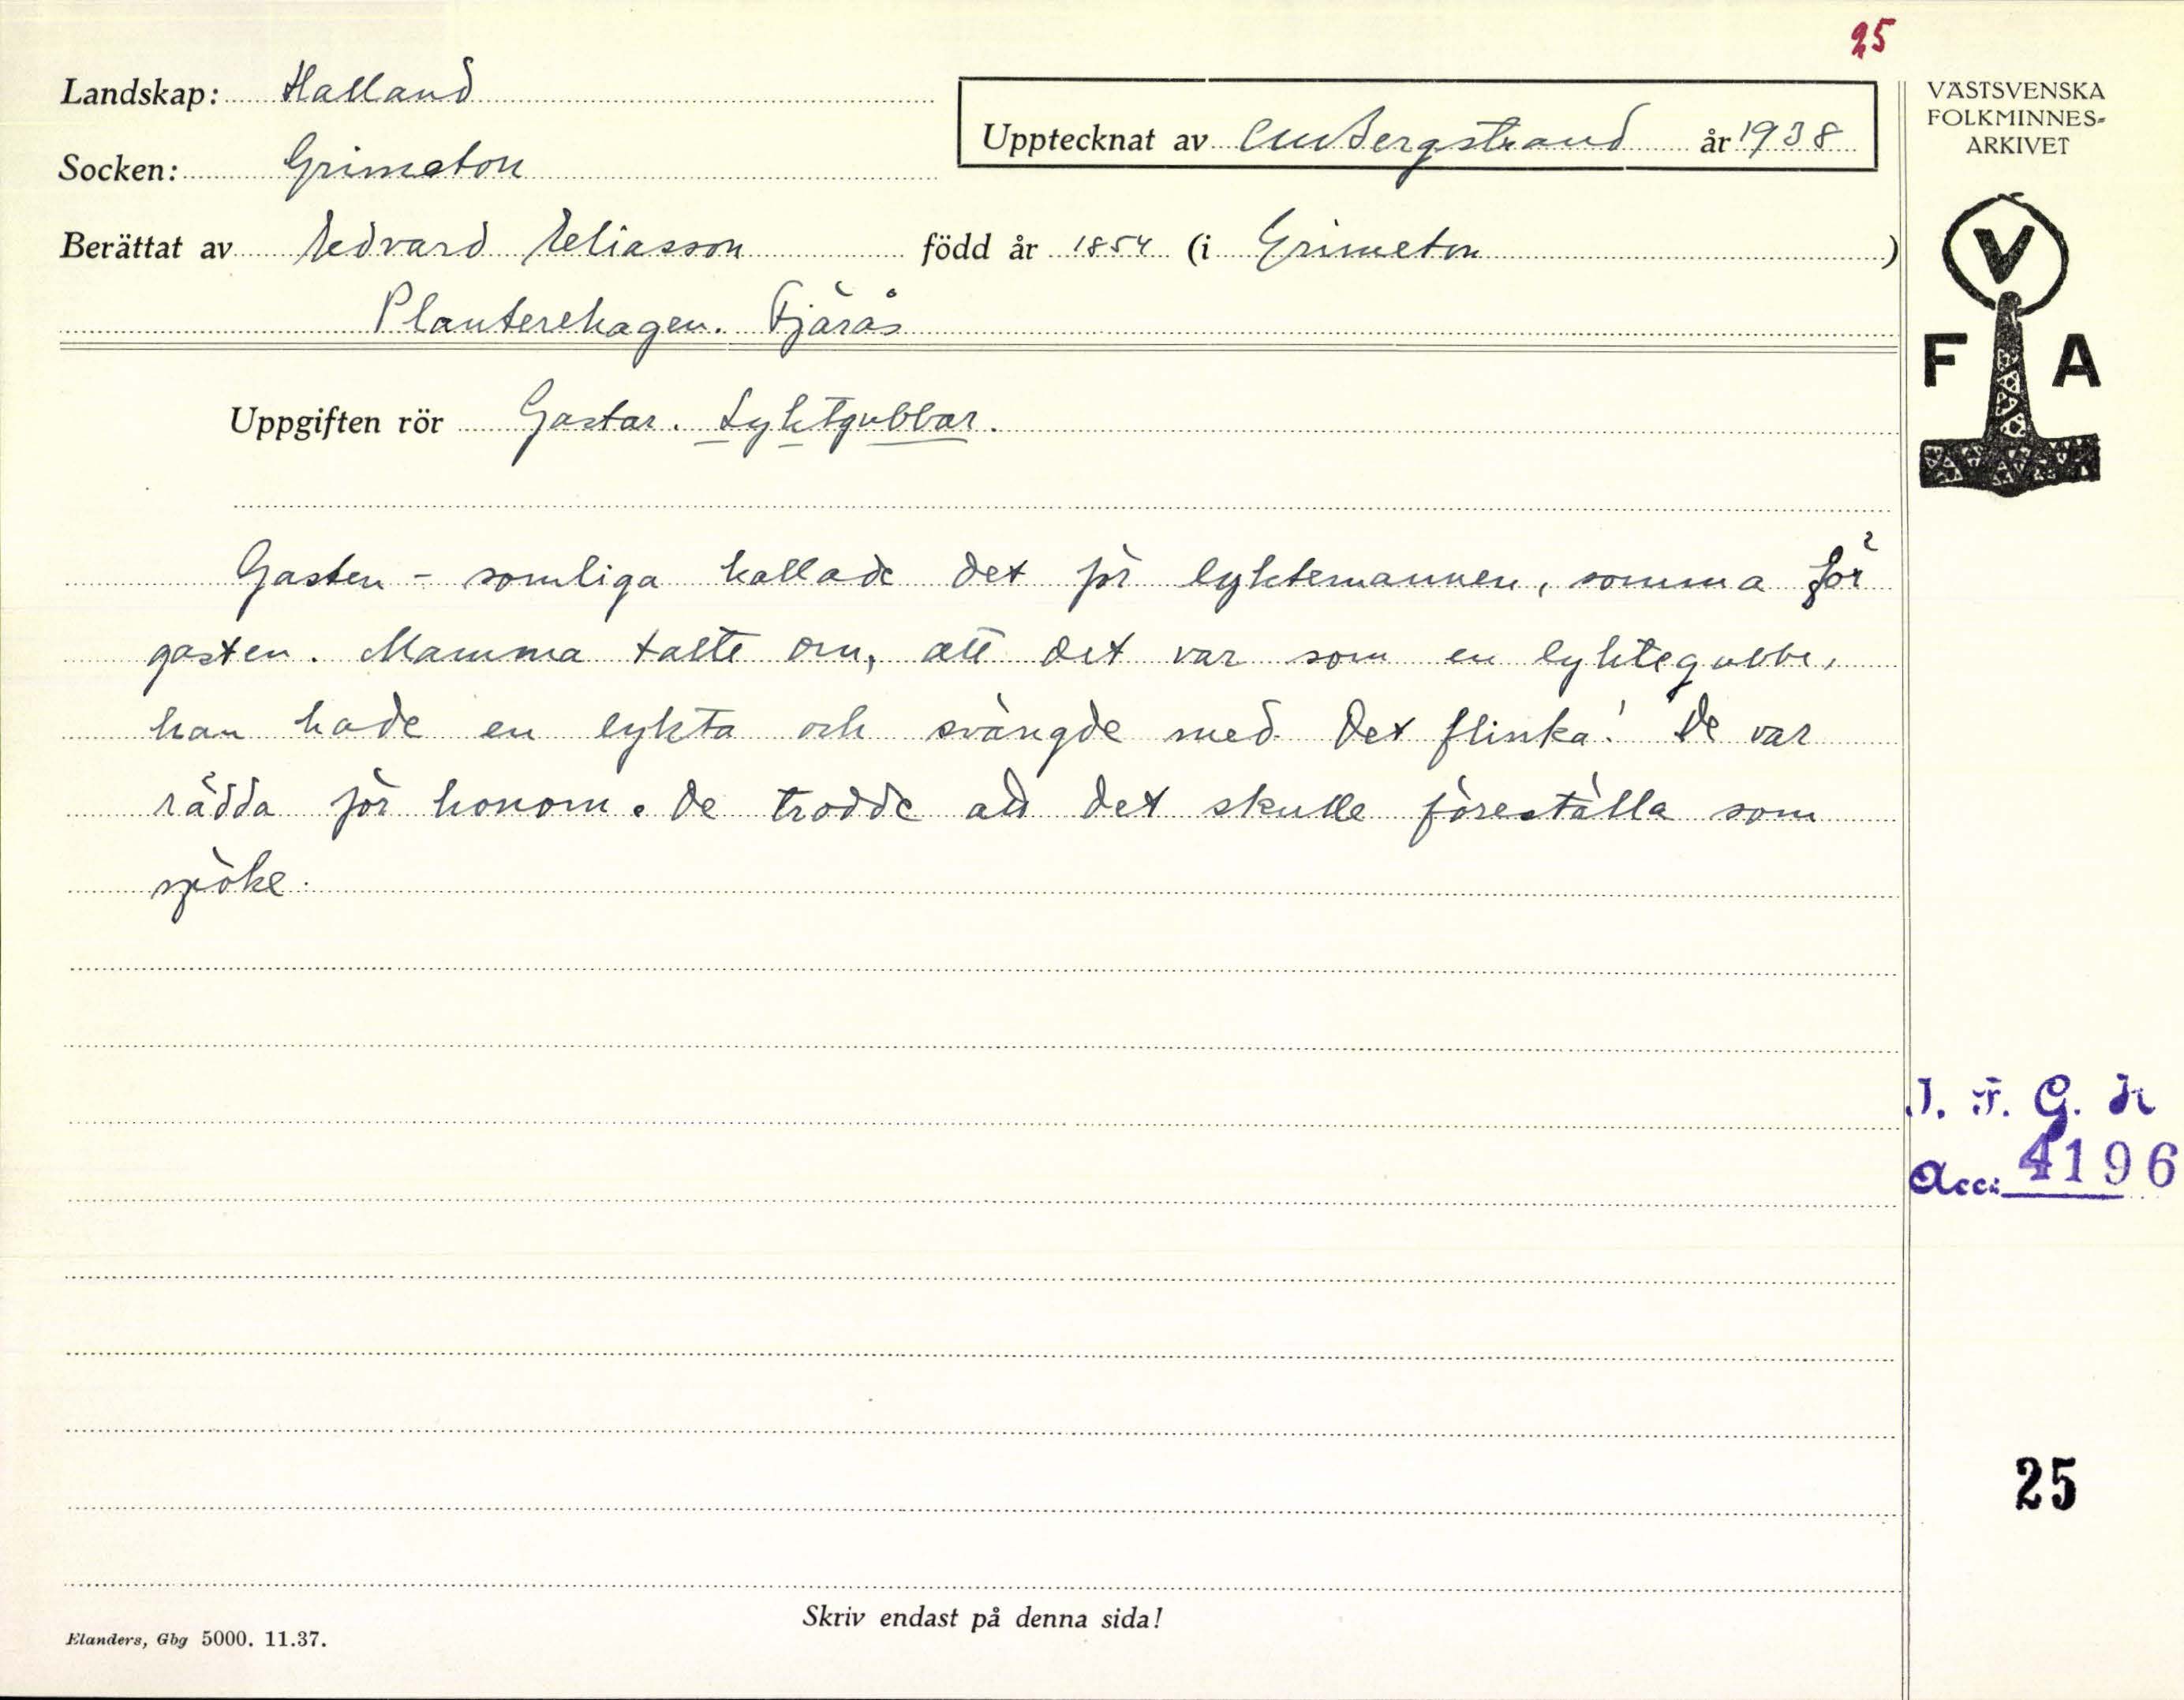 25
Landskap: Halland
Upptecknat av CM Bergstrand år 1938
VÄSTSVENSKA
FOLKMINNES-
ARKIVET
Socken: Grimeton
Berättat av Edvard Eliasson född år 1854 (i Grimeton)
Fjärås
V
F A
Uppgiften rör Gastar. Lyktgubbar.
Gasten - somliga kallade det för lyktemannen, somma för
gasten. Mamma talte om, att det var som en lyktegubbe,
han hade en lykta och svängde med. Det flinka! De var
rädda för honom. De trodde att det skulle föreställa som
spöke.
I. F. G. H
Acc: 4196
25
Skriv endast på denna sida!
Elanders, Gbg 5000. 11.37.